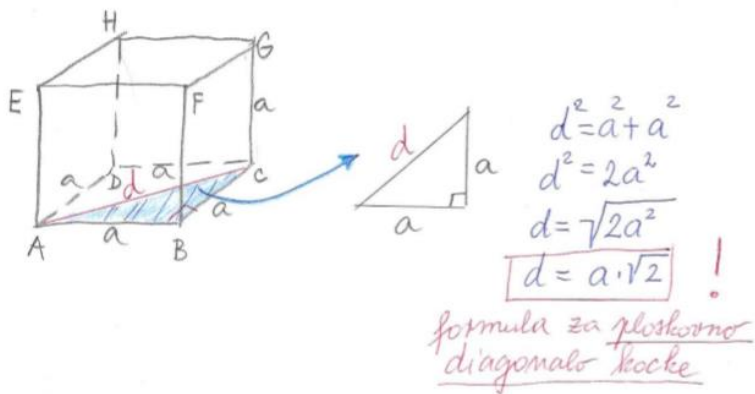 H
G
E
F
a
a
D
a
d
C
a
A
a
B
d
a
a
d²=a²+a²
d²=2a²
d=√2a²
d = a·√2 !
formula za ploskovno
diagonalo kocke